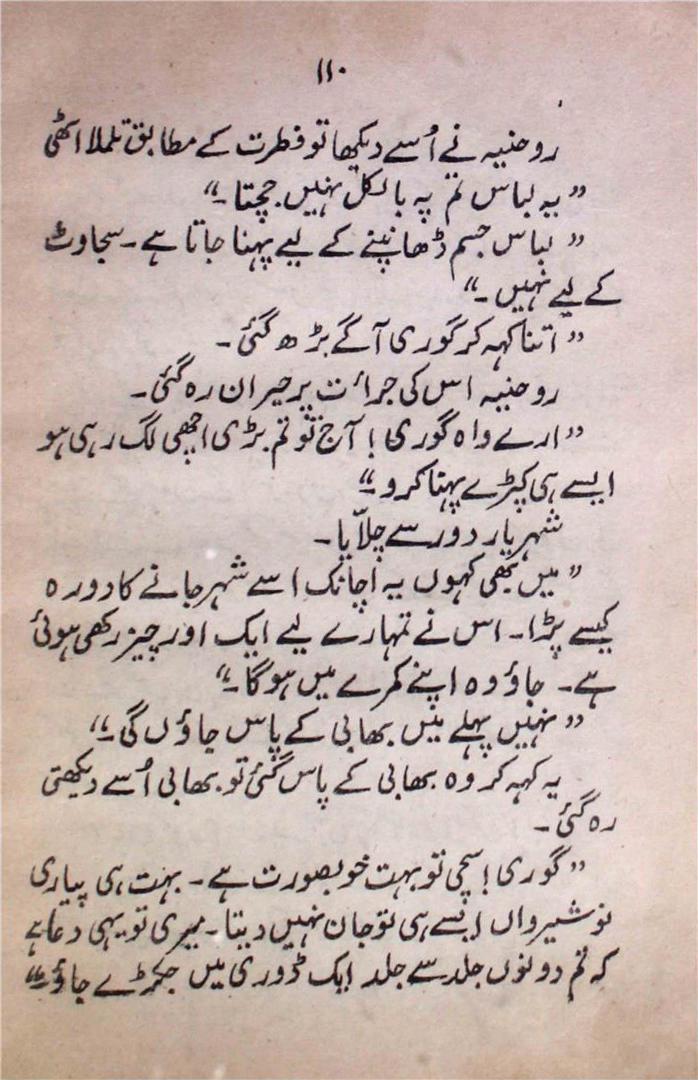 ۱۱۰
روحنیہ نے اُسے دیکھا تو فطرت کے مطابق تلملا اٹھی
”یہ لباس تم پہ بالکل نہیں جچتا۔“
”لباس جسم ڈھانپنے کے لیے پہنا جاتا ہے۔ سجاوٹ
کے لیے نہیں۔“
”اتنا کہہ کر گوری آگے بڑھ گئی۔
روحنیہ اس کی جرائت پر حیران رہ گئی۔
”ارے واہ گوری! آج تو تم بڑی اچھی لگ رہی ہو
ایسے ہی کپڑے پہنا کرو۔“
شہریار دور سے چلاّیا۔
”میں بھی کہوں یہ اچانک اسے شہر جانے کا دورہ
کیسے پڑا۔ اس نے تمہارے لیے ایک اور چیز رکھی ہوئی
ہے۔ جاؤ وہ اپنے کمرے میں ہو گا۔“
”نہیں پہلے میں بھابی کے پاس جاؤں گی۔“
یہ کہہ کر وہ بھابی کے پاس گئی تو بھابی اُسے دیکھتی
رہ گئی۔
”گوری! سچی تو بہت خوبصورت ہے۔ بہت ہی پیاری
نوشیرواں ایسے ہی تو جان نہیں دیتا۔ میری تو یہی دعا ہے
کہ تم دونوں جلد سے جلد ایک ڈوری میں جکڑے جاؤ۔“